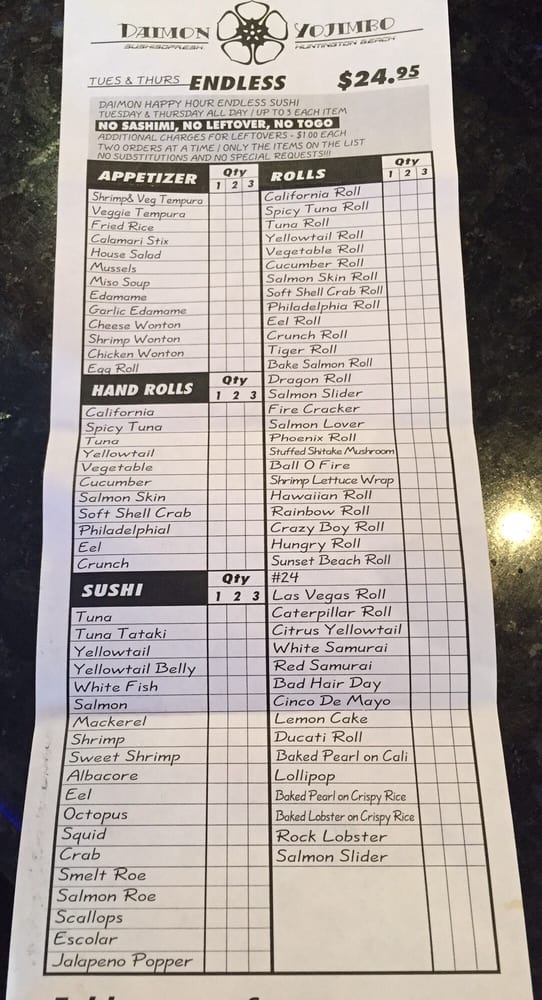 DAIMON YOJIMBO
SUSHISOFRESH HUNTINGTON BEACH
TUES & THURS ENDLESS $24.95
DAIMON HAPPY HOUR ENDLESS SUSHI
TUESDAY & THURSDAY ALL DAY / UP TO 3 EACH ITEM
NO SASHIMI, NO LEFTOVER, NO TOGO
ADDITIONAL CHARGES FOR LEFTOVERS - $1.00 EACH
TWO ORDERS AT A TIME / ONLY THE ITEMS ON THE LIST
NO SUBSTITUTIONS AND NO SPECIAL REQUESTS!!!
APPETIZER Qty 1 2 3
Shrimp& Veg Tempura
Veggie Tempura
Fried Rice
Calamari Stix
House Salad
Mussels
Miso Soup
Edamame
Garlic Edamame
Cheese Wonton
Shrimp Wonton
Chicken Wonton
Egg Roll
HAND ROLLS Qty 1 2 3
California
Spicy Tuna
Tuna
Yellowtail
Vegetable
Cucumber
Salmon Skin
Soft Shell Crab
Philadelphial
Eel
Crunch
SUSHI Qty 1 2 3
Tuna
Tuna Tataki
Yellowtail
Yellowtail Belly
White Fish
Salmon
Mackerel
Shrimp
Sweet Shrimp
Albacore
Eel
Octopus
Squid
Crab
Smelt Roe
Salmon Roe
Scallops
Escolar
Jalapeno Popper
ROLLS Qty 1 2 3
California Roll
Spicy Tuna Roll
Tuna Roll
Yellowtail Roll
Vegetable Roll
Cucumber Roll
Salmon Skin Roll
Soft Shell Crab Roll
Philadelphia Roll
Eel Roll
Crunch Roll
Tiger Roll
Bake Salmon Roll
Dragon Roll
Salmon Slider
Fire Cracker
Salmon Lover
Phoenix Roll
Stuffed Shitake Mushroom
Ball O Fire
Shrimp Lettuce Wrap
Hawaiian Roll
Rainbow Roll
Crazy Boy Roll
Hungry Roll
Sunset Beach Roll
#24
Las Vegas Roll
Caterpillar Roll
Citrus Yellowtail
White Samurai
Red Samurai
Bad Hair Day
Cinco De Mayo
Lemon Cake
Ducati Roll
Baked Pearl on Cali
Lollipop
Baked Pearl on Crispy Rice
Baked Lobster on Crispy Rice
Rock Lobster
Salmon Slider